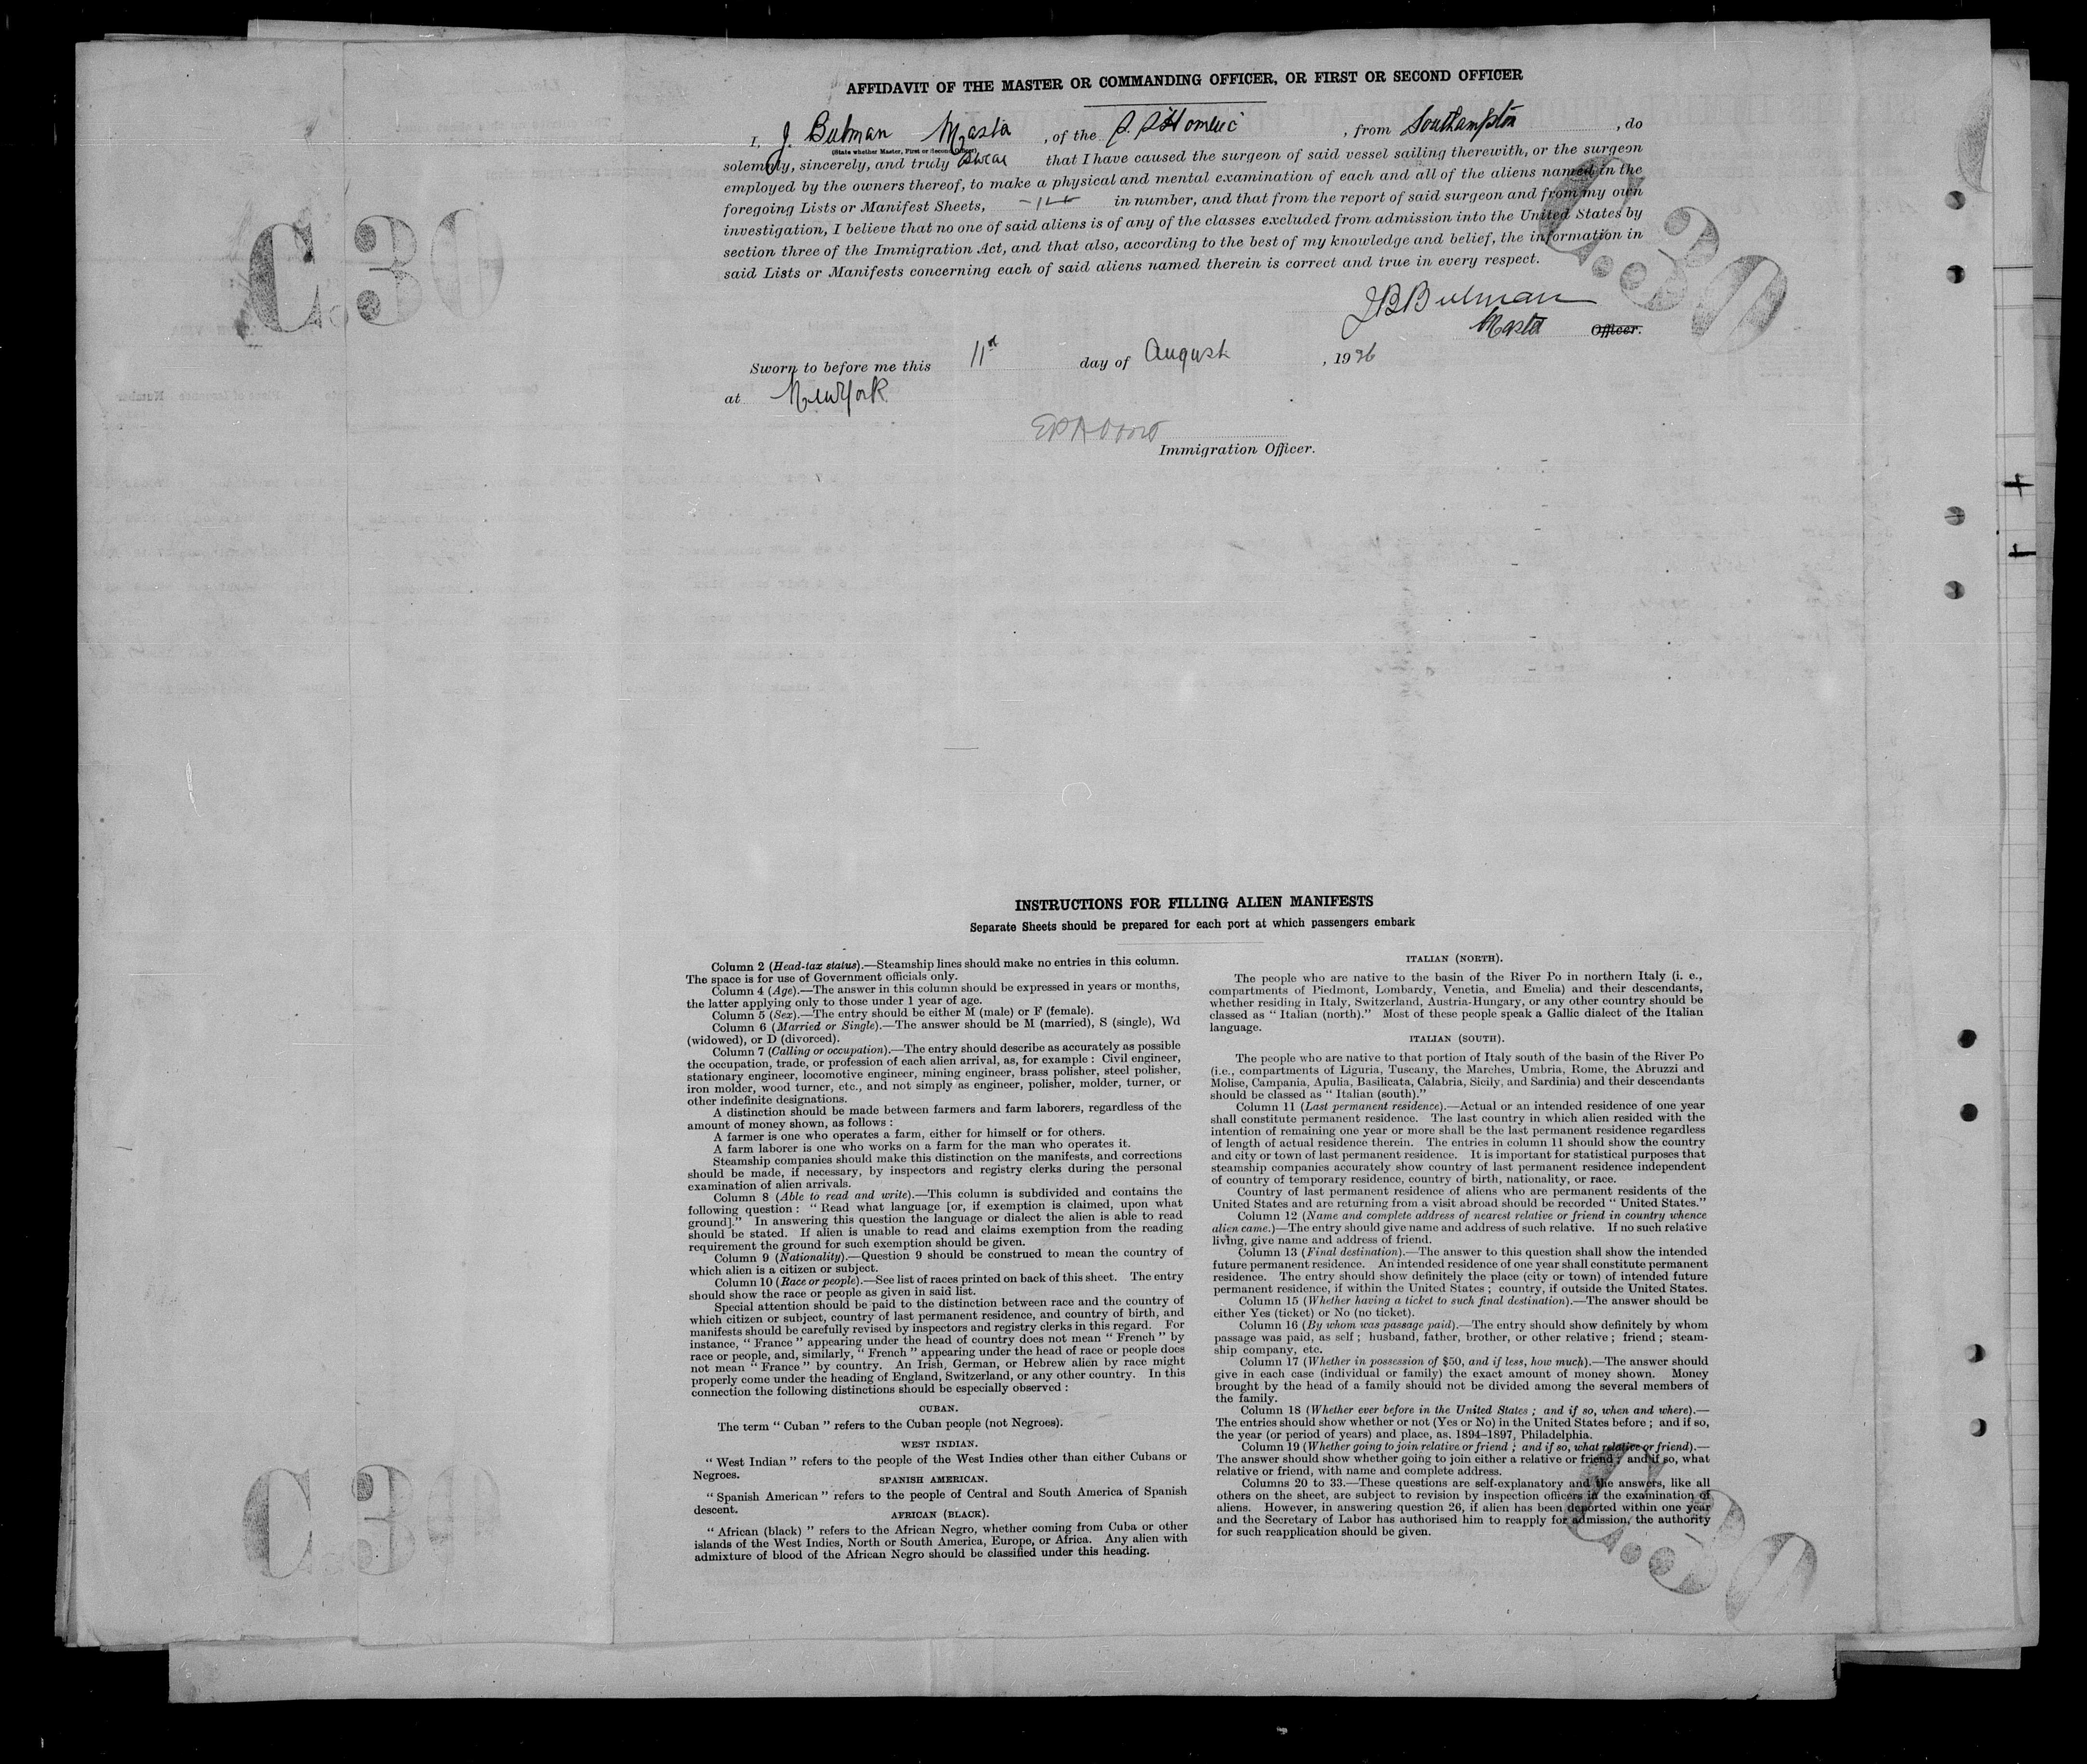 AFFIDAVIT OF THE MASTER OR COMMANDING OFFICER, OR FIRST OR SECOND OFFICER
I, J. Bulman Master, of the S.S. Homeric, from Southampton, do
(State whether Master, First or Second Officer)
solemnly, sincerely, and truly swear that I have caused the surgeon of said vessel sailing therewith, or the surgeon
employed by the owners thereof, to make a physical and mental examination of each and all of the aliens named in the
foregoing Lists or Manifest Sheets, in number, and that from the report of said surgeon and from my own
investigation, I believe that no one of said aliens is of any of the classes excluded from admission into the United States by
section three of the Immigration Act, and that also, according to the best of my knowledge and belief, the information in
said Lists or Manifests concerning each of said aliens named therein is correct and true in every respect.
J B Bulman
Master Officer.
Sworn to before me this 11th day of August, 1926
at New York
Immigration Officer.
C.30
C.30
INSTRUCTIONS FOR FILLING ALIEN MANIFESTS
Separate Sheets should be prepared for each port at which passengers embark
Column 2 (Head-tax status).—Steamship lines should make no entries in this column.
The space is for use of Government officials only.
Column 4 (Age).—The answer in this column should be expressed in years or months,
the latter applying only to those under 1 year of age.
Column 5 (Sex).—The entry should be either M (male) or F (female).
Column 6 (Married or Single).—The answer should be M (married), S (single), Wd
(widowed), or D (divorced).
Column 7 (Calling or occupation).—The entry should describe as accurately as possible
the occupation, trade, or profession of each alien arrival, as, for example : Civil engineer,
stationary engineer, locomotive engineer, mining engineer, brass polisher, steel polisher,
iron molder, wood turner, etc., and not simply as engineer, polisher, molder, turner, or
other indefinite designations.
A distinction should be made between farmers and farm laborers, regardless of the
amount of money shown, as follows :
A farmer is one who operates a farm, either for himself or for others.
A farm laborer is one who works on a farm for the man who operates it.
Steamship companies should make this distinction on the manifests, and corrections
should be made, if necessary, by inspectors and registry clerks during the personal
examination of alien arrivals.
Column 8 (Able to read and write).—This column is subdivided and contains the
following question : “ Read what language [or, if exemption is claimed, upon what
ground].” In answering this question the language or dialect the alien is able to read
should be stated. If alien is unable to read and claims exemption from the reading
requirement the ground for such exemption should be given.
Column 9 (Nationality).—Question 9 should be construed to mean the country of
which alien is a citizen or subject.
Column 10 (Race or people).—See list of races printed on back of this sheet. The entry
should show the race or people as given in said list.
Special attention should be paid to the distinction between race and the country of
which citizen or subject, country of last permanent residence, and country of birth, and
manifests should be carefully revised by inspectors and registry clerks in this regard. For
instance, “ France ” appearing under the head of country does not mean “ French ” by
race or people, and, similarly, “ French ” appearing under the head of race or people does
not mean “ France ” by country. An Irish, German, or Hebrew alien by race might
properly come under the heading of England, Switzerland, or any other country. In this
connection the following distinctions should be especially observed :
CUBAN.
The term “ Cuban ” refers to the Cuban people (not Negroes).
WEST INDIAN.
“ West Indian ” refers to the people of the West Indies other than either Cubans or
Negroes.
SPANISH AMERICAN.
“ Spanish American ” refers to the people of Central and South America of Spanish
descent.
AFRICAN (BLACK).
“ African (black) ” refers to the African Negro, whether coming from Cuba or other
islands of the West Indies, North or South America, Europe, or Africa. Any alien with
admixture of blood of the African Negro should be classified under this heading.
ITALIAN (NORTH).
The people who are native to the basin of the River Po in northern Italy (i. e.,
compartments of Piedmont, Lombardy, Venetia, and Emelia) and their descendants,
whether residing in Italy, Switzerland, Austria-Hungary, or any other country should be
classed as “ Italian (north).” Most of these people speak a Gallic dialect of the Italian
language.
ITALIAN (SOUTH).
The people who are native to that portion of Italy south of the basin of the River Po
(i.e., compartments of Liguria, Tuscany, the Marches, Umbria, Rome, the Abruzzi and
Molise, Campania, Apulia, Basilicata, Calabria, Sicily, and Sardinia) and their descendants
should be classed as “ Italian (south).”
Column 11 (Last permanent residence).—Actual or an intended residence of one year
shall constitute permanent residence. The last country in which alien resided with the
intention of remaining one year or more shall be the last permanent residence regardless
of length of actual residence therein. The entries in column 11 should show the country
and city or town of last permanent residence. It is important for statistical purposes that
steamship companies accurately show country of last permanent residence independent
of country of temporary residence, country of birth, nationality, or race.
Country of last permanent residence of aliens who are permanent residents of the
United States and are returning from a visit abroad should be recorded “ United States.”
Column 12 (Name and complete address of nearest relative or friend in country whence
alien came.)—The entry should give name and address of such relative. If no such relative
living, give name and address of friend.
Column 13 (Final destination).—The answer to this question shall show the intended
future permanent residence. An intended residence of one year shall constitute permanent
residence. The entry should show definitely the place (city or town) of intended future
permanent residence, if within the United States ; country, if outside the United States.
Column 15 (Whether having a ticket to such final destination).—The answer should be
either Yes (ticket) or No (no ticket).
Column 16 (By whom was passage paid).—The entry should show definitely by whom
passage was paid, as self ; husband, father, brother, or other relative ; friend ; steam-
ship company, etc.
Column 17 (Whether in possession of $50, and if less, how much).—The answer should
give in each case (individual or family) the exact amount of money shown. Money
brought by the head of a family should not be divided among the several members of
the family.
Column 18 (Whether ever before in the United States ; and if so, when and where).—
The entries should show whether or not (Yes or No) in the United States before ; and if so,
the year (or period of years) and place, as, 1894–1897, Philadelphia.
Column 19 (Whether going to join relative or friend ; and if so, what relative or friend).—
The answer should show whether going to join either a relative or friend ; and if so, what
relative or friend, with name and complete address.
Columns 20 to 33.—These questions are self-explanatory and the answers, like all
others on the sheet, are subject to revision by inspection officers in the examination of
aliens. However, in answering question 26, if alien has been deported within one year
and the Secretary of Labor has authorised him to reapply for admission, the authority
for such reapplication should be given.
C 30
C.30